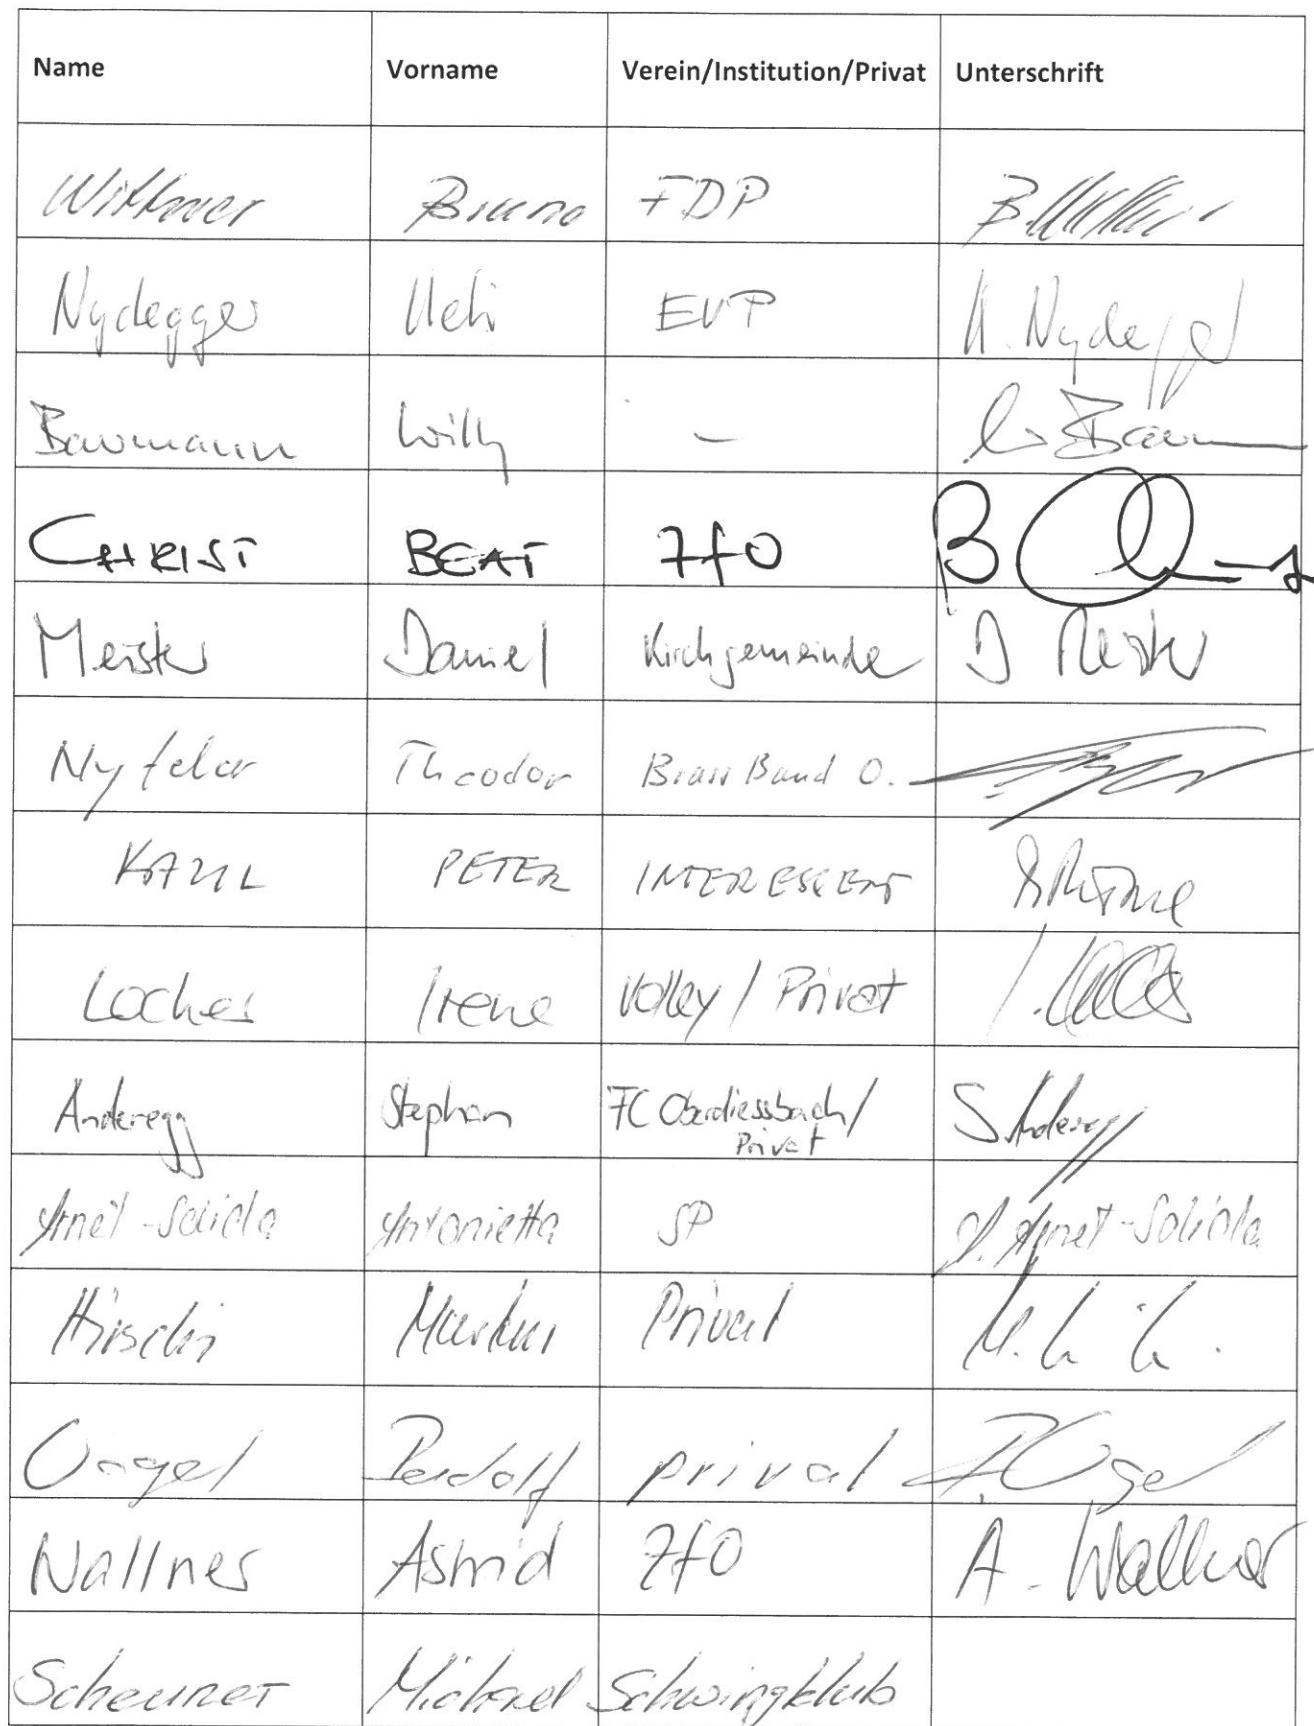 Name Vorname Verein/Institution/Privat Unterschrift
Wittwer Bruno FDP
Nydegger Ueli EVP U. Nydegger
Baumann Willy –
CHRIST BEAT 7fO
Meister Daniel Kirchgemeinde D Meister
Nyfeler Theodor Brass Band O.
PETER INTERESSENT
Locher Irene Volley / Privat
Anderegg Stephan FC Oberdiessbach/ S. Anderegg
Privat
Antonietta SP
Hirschi Markus Privat
Vogel Rudolf privat R. Vogel
Wallner Astrid 7fO A. Wallner
Scheurer Michael Schwingklub